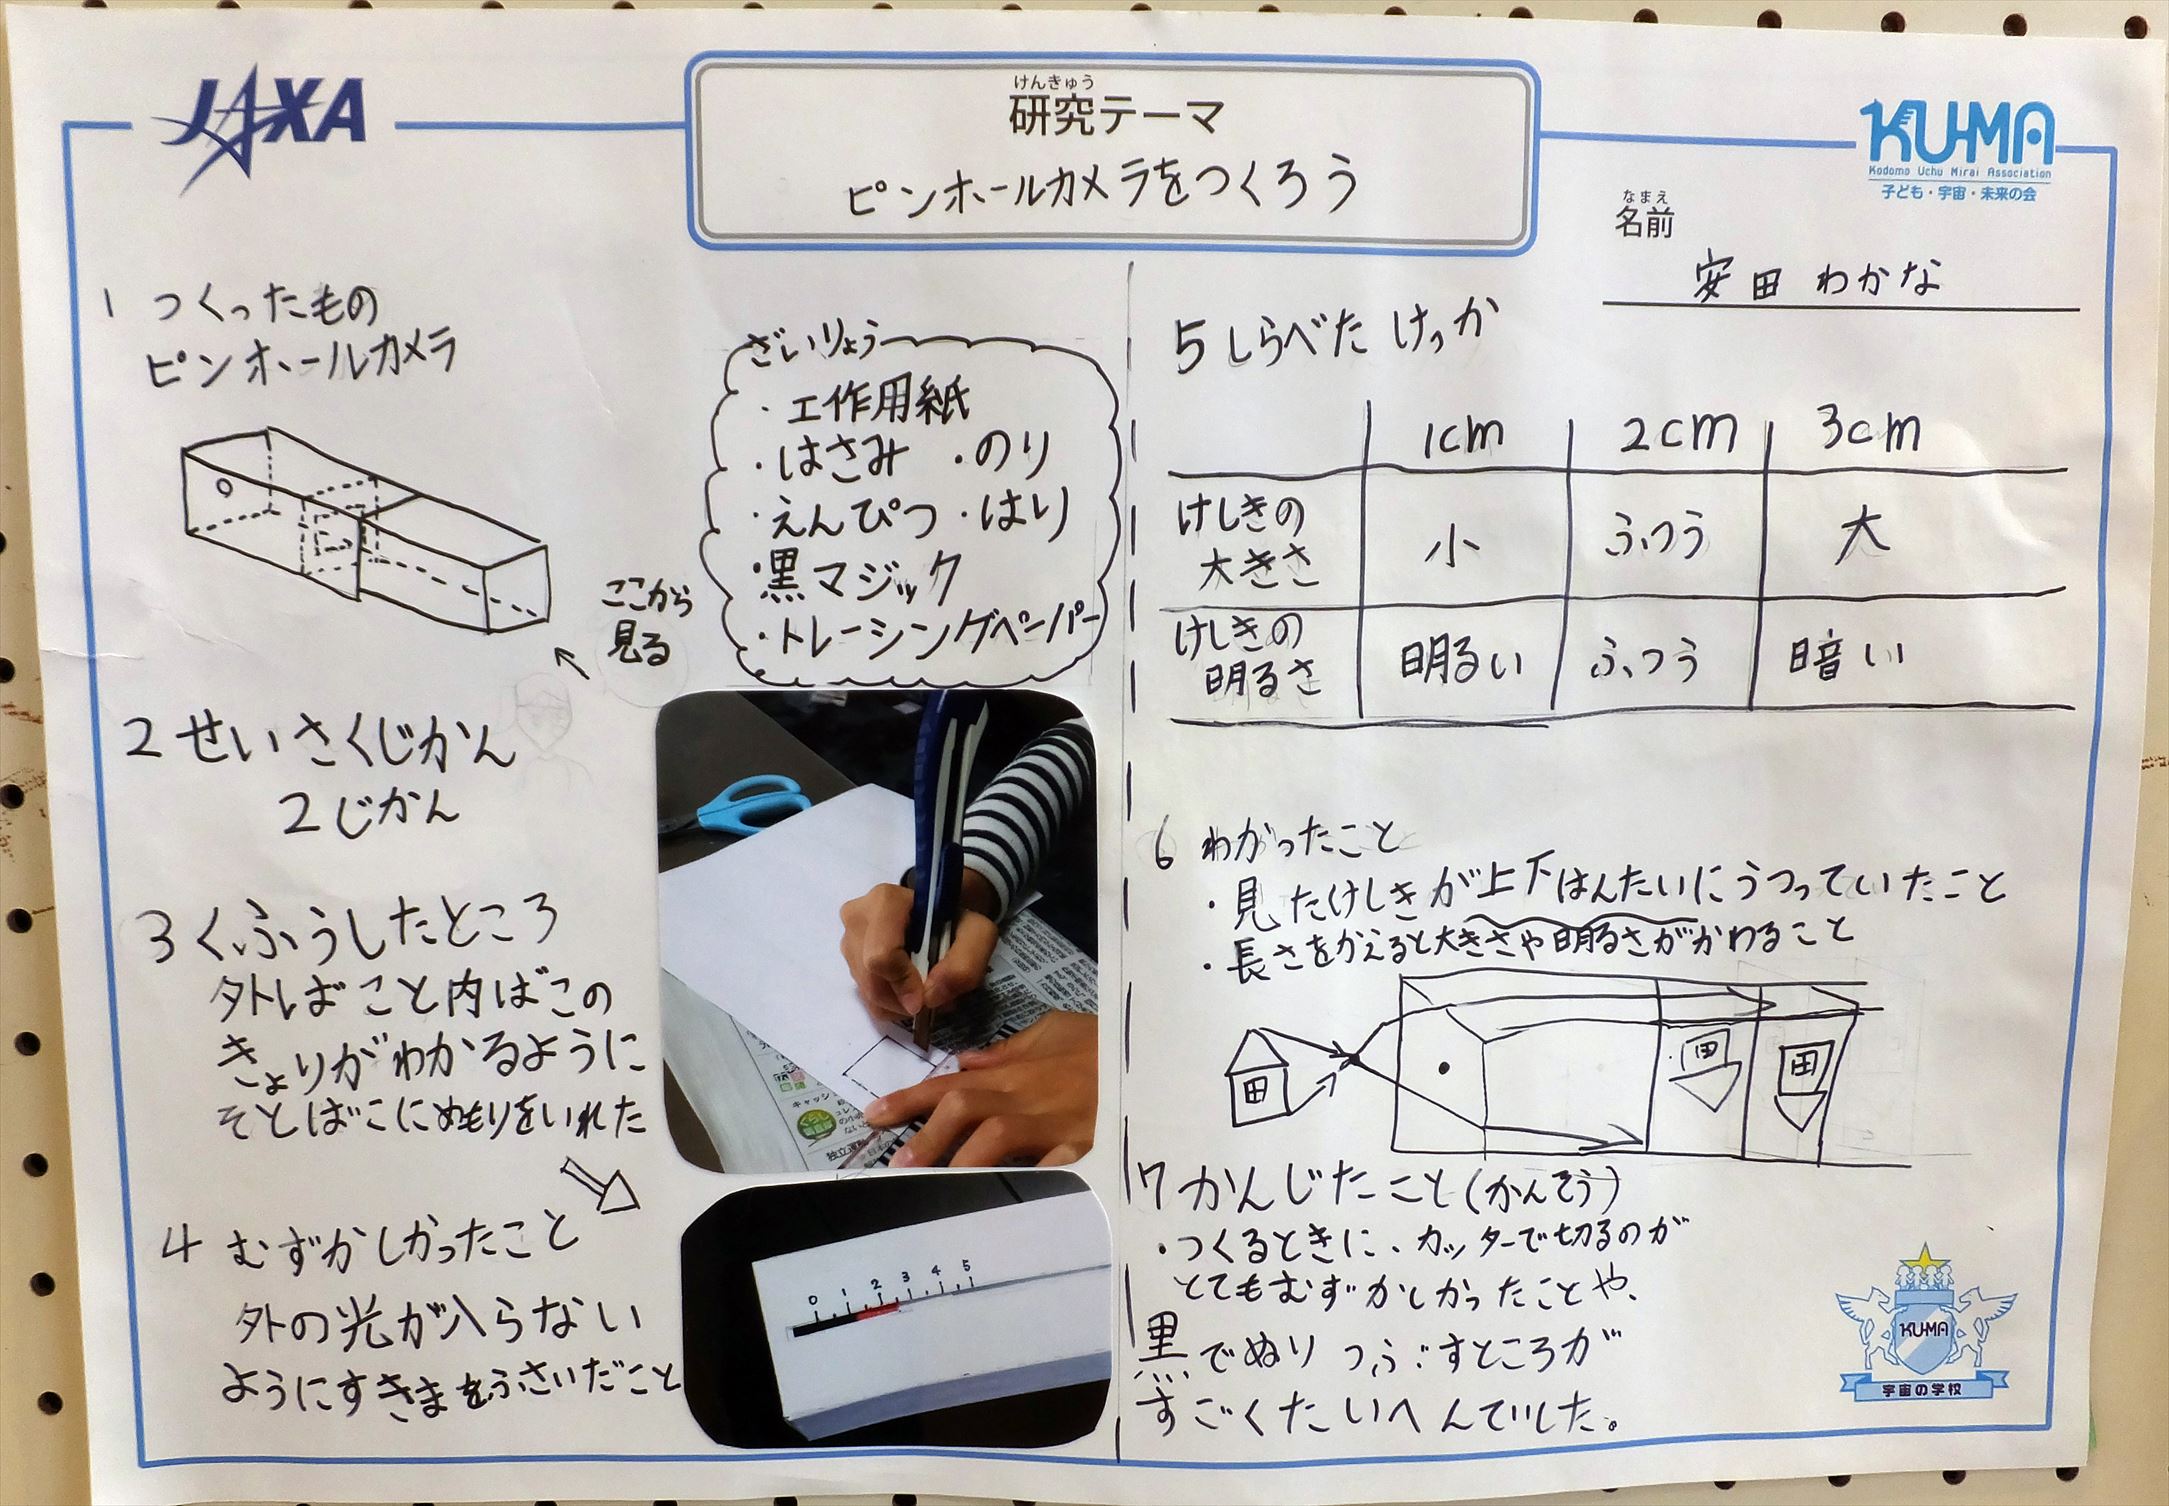 JAXA
けんきゅう
研究テーマ
ピンホールカメラをつくろう
KU-MA
Kodomo Uchu Mirai Association
子ども・宇宙・未来の会
なまえ
名前
安田 わかな
1 つくったもの
ピンホールカメラ
ここから
見る
ざいりょう
・工作用紙
・はさみ ・のり
・えんぴつ ・はり
・黒マジック
・トレーシングペーパー
2 せいさくじかん
2じかん
3 くふうしたところ
外ばこと内ばこの
きょりがわかるように
そとばこにめもりをいれた
4 むずかしかったこと
外の光が入らない
ようにすきまをふさいだこと
0 1 2 3 4 5
5 しらべた けっか
1cm 2cm 3cm
けしきの
大きさ
小 ふつう 大
けしきの
明るさ
明るい ふつう 暗い
6 わかったこと
・見たけしきが上下はんたいにうつっていたこと
・長さをかえると大きさや明るさがかわること
7 かんじたこと(かんそう)
・つくるときに、カッターで切るのが
とてもむずかしかったことや、
黒でぬりつぶすところが
すごくたいへんでした。
KU-MA
宇宙の学校